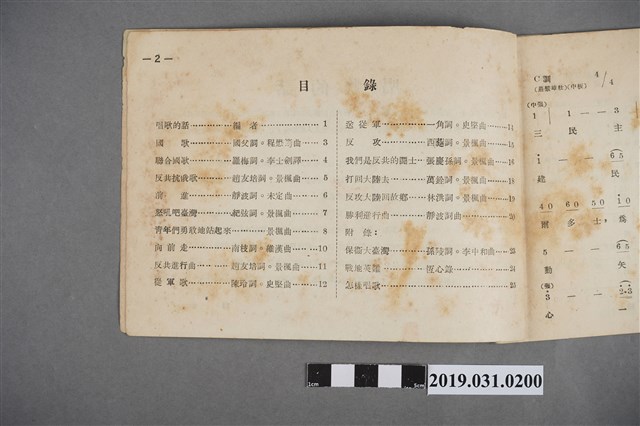 — 2 —
目 錄
唱歌的話 ………… 編者 ………… 1
國歌 ………… 國父詞。程懋筠曲 …… 3
聯合國歌 ………… 羅梅詞。李士釗譯 …… 4
反共抗俄歌 ……… 趙友培詞。景楓曲 …… 5
前進 ………… 靜波詞。未定曲 …… 6
怒吼吧臺灣 ……… 紀弦詞。景楓曲 …… 7
青年們勇敢地站起來 ……… 景楓曲 …… 8
向前走 ………… 南枝詞。羅漢曲 …… 10
反共進行曲 ……… 趙友培詞。景楓曲 …… 11
從軍歌 ………… 陳玲詞。史堅曲 …… 12
送從軍 ………… 一角詞。史堅曲 …… 14
反攻 ………… 西蔭詞。景楓曲 …… 16
我們是反共的鬪士 … 張慶孫詞。景楓曲 … 16
打回大陸去 ……… 萬銓詞。景楓曲 …… 16
反攻大陸回故鄉 …… 林洪詞。景楓曲 …… 18
勝利進行曲 ……… 靜波詞曲 …… 20
附錄：
保衛大臺灣 ……… 孫陵詞。李中和曲 …… 23
戰地英雄 ………… 恆心錄 …… 24
怎樣唱歌 ………… 25
C調 4/4
(中板)
(中強)
1 1 — 3
三 民 主
1 — — (65
建 民
40 60 50 10
爾 多 士，爲
5 — — (65
勤 矢
(強)
3 — — (2·3
心 一
1cm 5cm
2019.031.0200